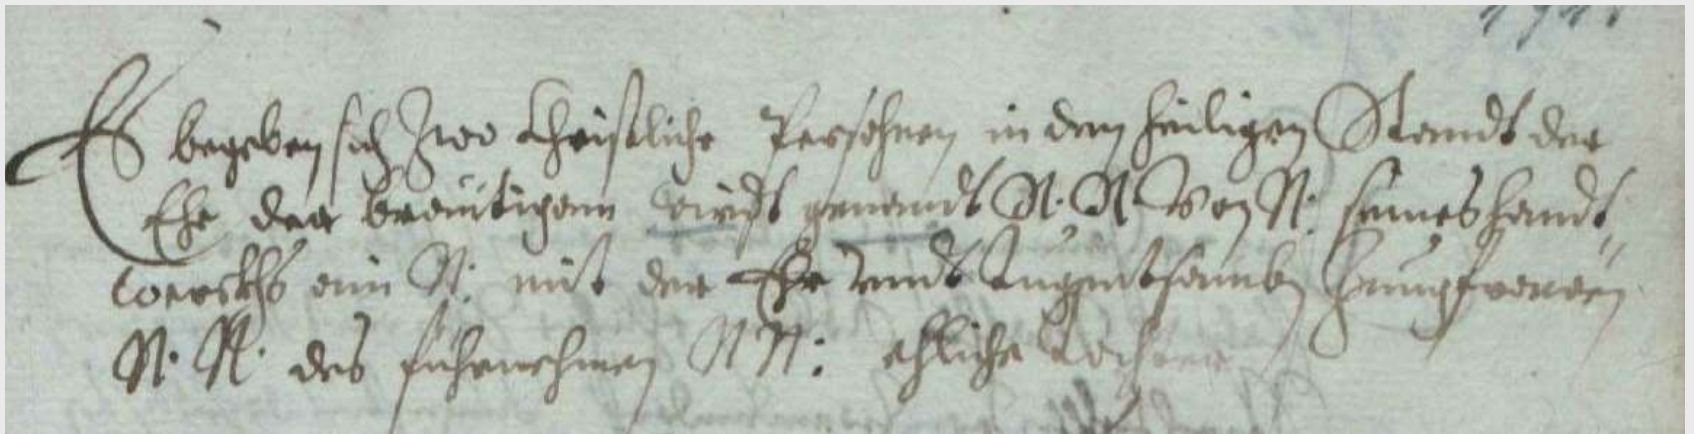 Es begeben sich Zwo Christliche Persohnen in den heiligen Standt der
Ehe der breutigam wirdt genandt N. N. Von N: seines handt„
werckhs ein N. mit der Ehr undt tugentsamben Jungfrauen
N. N. des fürnehmen N N: ehliche tochter